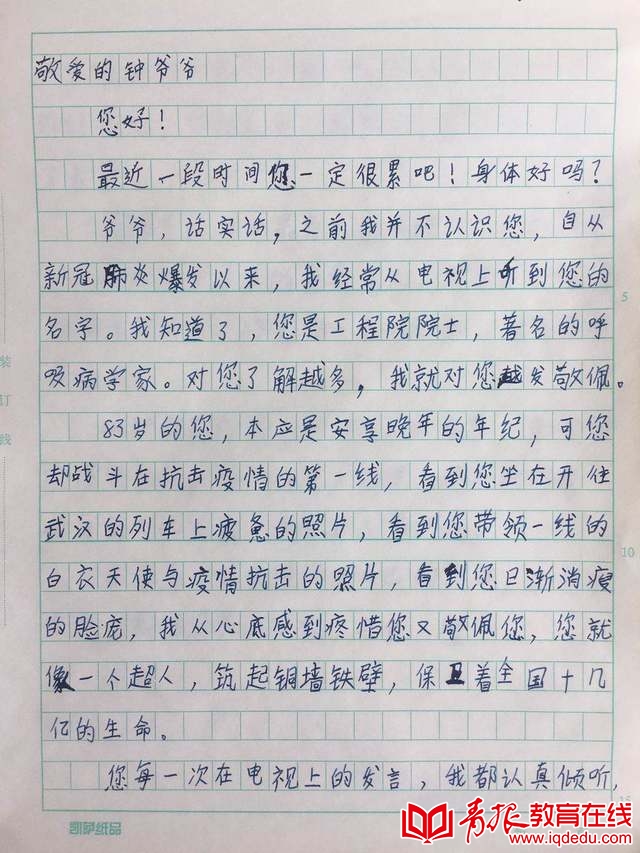 敬爱的钟爷爷
您好！
最近一段时间您一定很累吧！身体好吗？
爷爷，话实话，之前我并不认识您，自从
新冠肺炎爆发以来，我经常从电视上听到您的
名字。我知道了，您是工程院院士，著名的呼
吸病学家。对您了解越多，我就对您越发敬佩。
83岁的您，本应是安享晚年的年纪，可您
却战斗在抗击疫情的第一线，看到您坐在开往
武汉的列车上疲惫的照片，看到您带领一线的
白衣天使与疫情抗击的照片，看到您日渐消瘦
的脸庞，我从心底感到疼惜您又敬佩您，您就
像一个超人，筑起铜墙铁壁，保卫着全国十几
亿的生命。
您每一次在电视上的发言，我都认真倾听，
装
订
线
5
10
15
凯萨纸品
青报教育在线
www.iqdedu.com